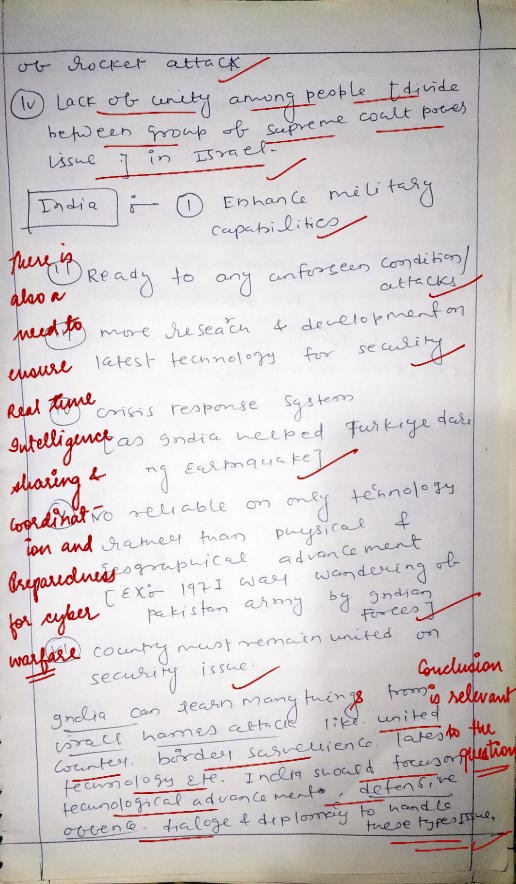 ob rocket attack
(iv) Lack ob unity among people [divide
between group of supreme coalt power
issue ] in Israel.
India :- (1) Enhance military
capabilities
(ii) Ready to any unforseen condition/
attacks
(iii) more reseach & development on
latest technology for security
crisis response system
[as India helped Turkiye dure
ng Earthquake]
No reliable on only technology
rather than physical &
geographical advancement
[EX:- 1971 war wandering ob
Pakistan army by Indian
Forces]
country must remain united on
security issue.
There is
also a
need to
ensure
Real time
Intelligence
sharing &
coordinat-
ion and
Preparedness
for cyber
warfare
India can learn many things from
israel hamas attack like united
country, border survellience, latest
technology etc. India should focus on
technological advancement, defensive
obbence, dialoge & diplomacy to handle
these types issue.
Conclusion
is relevant
to the
question